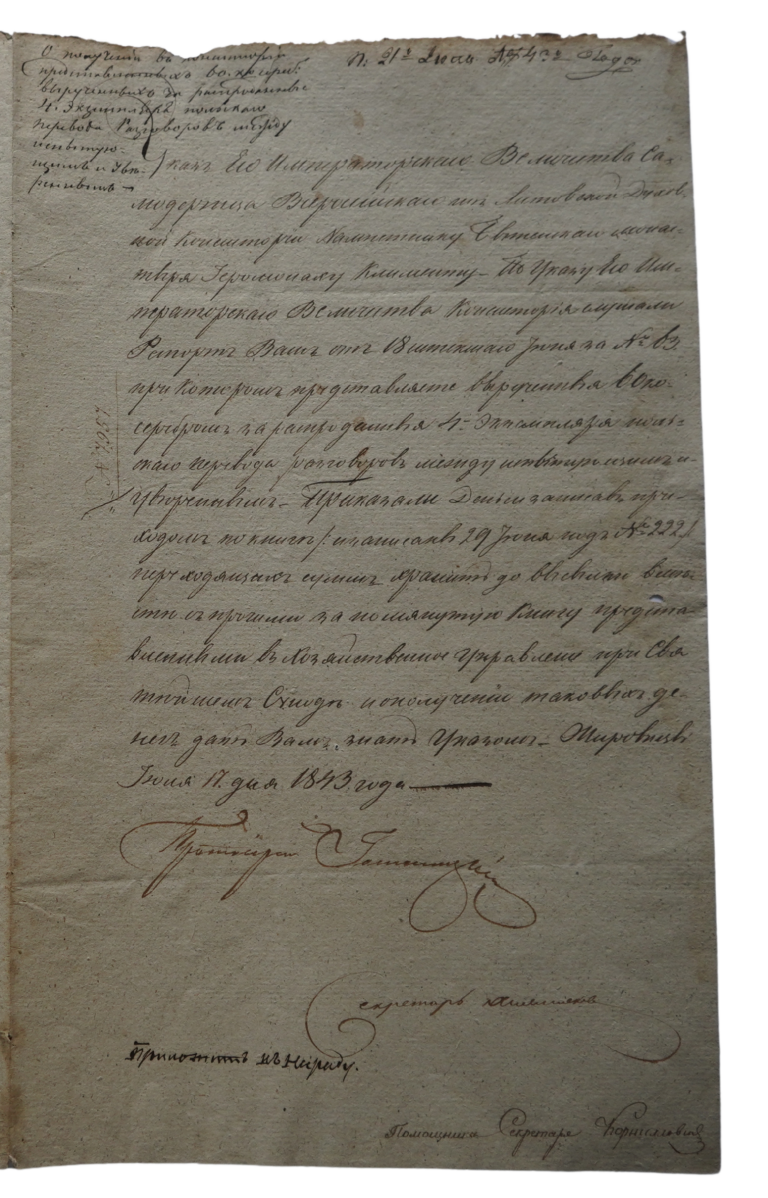 О получении въ консисторіи
представленныхъ 60. коп. сереб:
вырученныхъ за распроданные
4. Экземпляра польскаго
перевода Разговоровъ между
испытую-
щимъ и Увѣ-
реннымъ
П: 21го Іюля 1843го Года
Указъ Его Императорскаго Величества Са-
модержца Всероссійскаго изъ Литовской Духов
ной Консисторіи Намѣстнику монас-
тыря Іеромонаху Клименту По Указу Его Им-
ператорскаго Величества Консисторія слушали
Рапортъ Вашъ отъ 18 истекшаго Іюня за № 63.
при которомъ представляете вырученныя 60 ко-
серебромъ за распроданныя 4 Экземпляра поль-
скаго перевода разговоровъ между испытующимъ и
Увѣреннымъ Приказали Деньги записавъ при-
ходомъ по книгѣ /: и записаны 29 Іюня подъ № 222 /
переходящихъ суммъ хранить до высылки вмѣ
стѣ съ прочими за помянутую Книгу предста-
вленными въ Хозяйственное Управленіе при Свя
тѣйшемъ Сѵнодѣ и о полученіи таковыхъ де-
негъ дать Вамъ знать Указомъ Жировицы
Іюля 17. дня 1843 года
№ 7257
Протоіерей
Секретарь
Приложить къ Наряду.
Помощника Секретаря